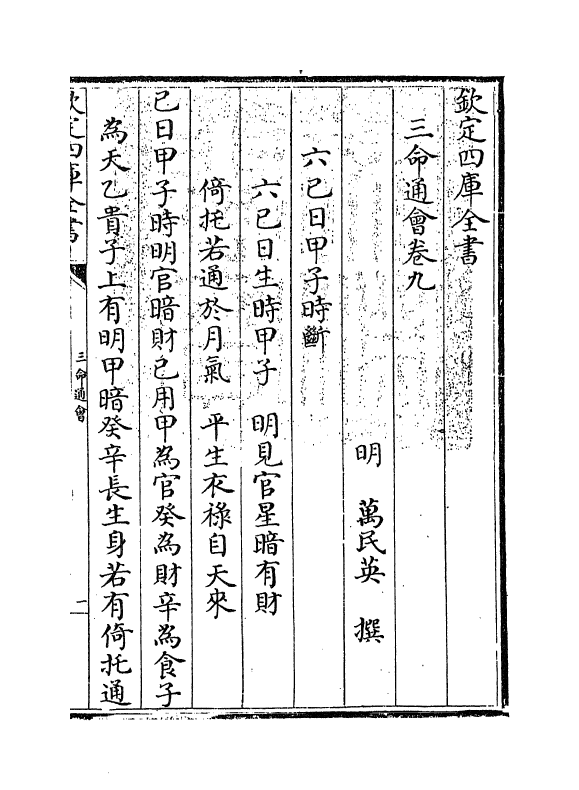 欽定四庫全書
三命通會卷九
明 萬民英 撰
六己日甲子時斷
六己日生時甲子 明見官星暗有財
倚托若通於月氣 平生衣祿自天來
己日甲子時明官暗財己用甲為官癸為財辛為食子
為天乙貴子上有明甲暗癸辛長生身若有倚托通
欽定四庫全書
三命通會
二